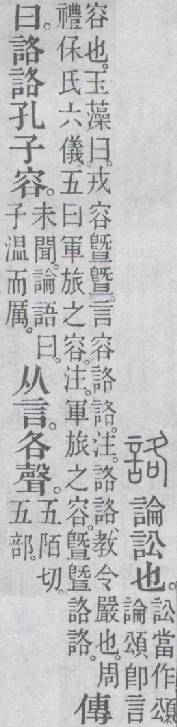 詻論訟也。訟當作頌
論頌即言
容也。玉藻曰。戎容曁曁。言容詻詻。注。詻詻、教令嚴也。周
禮保氏六儀。五曰軍旅之容。注。軍旅之容。曁曁詻詻。
傳
曰。詻詻孔子容。未聞。論語曰。
子溫而厲。
从言。各聲。五陌切。
五部。